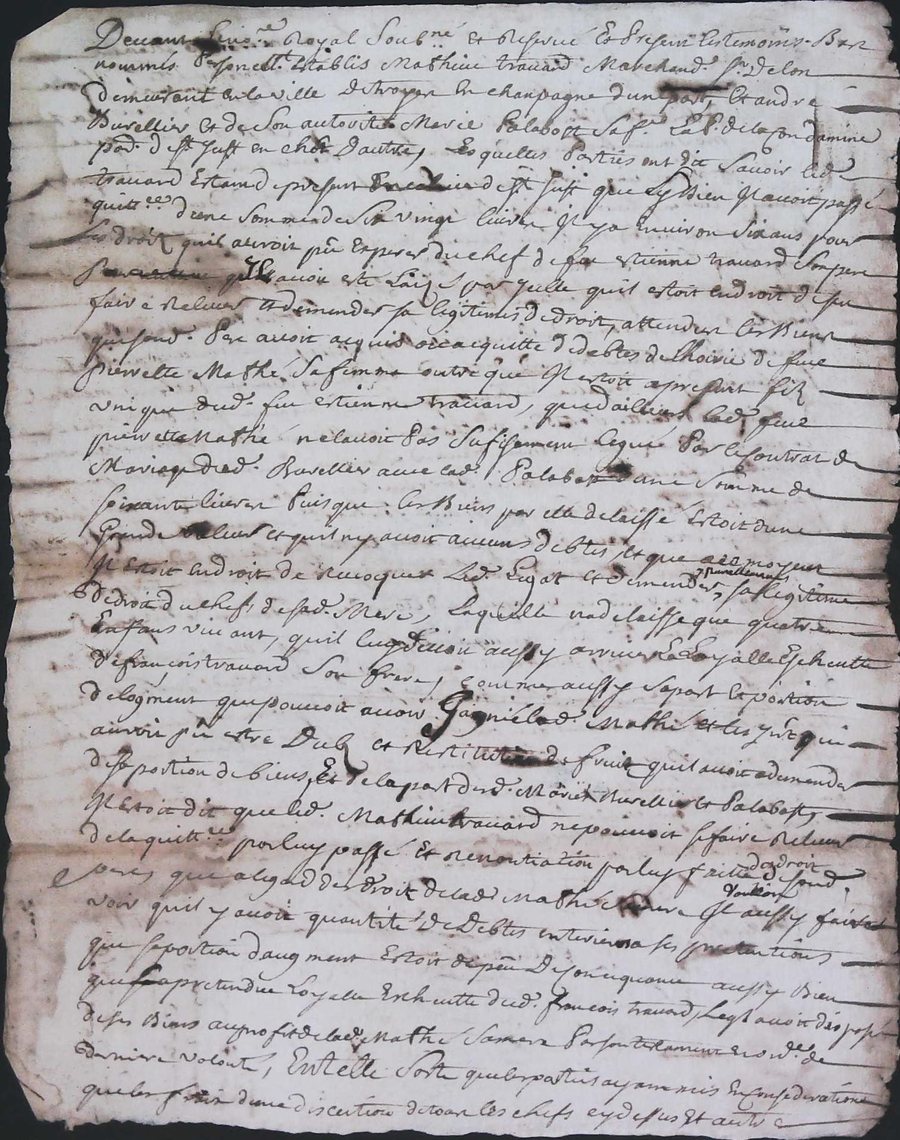 Devant le no.re Royal Soub.né et Reservé et presents les temoins Bas
nommés personel.t Establis Mathieu travard Marchand de lon
demeurant en la ville de troyes en chanpagne d'une part, Et andré
Burellier et de Son autorité Marie Palabost Sa fe. de la fondamine
par. de st Just en chev. d'autre, Lesquelles Parties ont dit Savoir led.
travard Estand de present de st Just que Bien Il avoit passé
quitt.ce d'une Somme de Six vingt livres Il y a Environ Six ans pour
les droit qu'il auroit pu Esperer du chef de feu estienne travard Son pere
qu'Il avoit esté par Icelle qu'il estoit en droit de se
faire Relever et demender sa legitime de droit, attendeu les Biens
que sond. Pere avoit acquis ou acquitté de debtes de l'hoirie de feue
pierrette Mathé Sa femme outre que Il estoit apresent fils
unique dud. feu estienne travard, que d'ailleurs lad. feue
pierrette Mathé ne l'avoit Pas Sufisamment legué Par le Contrat de
Mariage dud. Burellier avec lad. Palabost d'une Somme de
soixante livres Puisque les Biens par elle delaissé Estoit d'une
Grande valleur et qu'il n'y avoit aucuns debtes, et que au moyen
Il Estoit en droit de revoquer led. Legat et demender pareillement sa legitime
de droit du chef de sad. Mere, Laquelle n'a delaissé que quatre
Enfans vivant, qu'il luy aussy arriver La Loyalle Escheutte
de francois travard Son frere, comme aussy sa part et portion
de logment que pouvoit avoir Gagné lad. Mathé et les qui
auroit pu estre Dub et Restitution de fruits qu'il avoit a demender
de sa portion de biens, Et de la part desd. Mariés Burellier et Palabost,
Il Estoit dit que led. Mathieu travard ne pouvoit se faire Relever
de la quitt.ce par luy passé Et Renontiation par luy faitte des droit de sond.
pere, que a legard des droit de lad. Mathé Il aussy faire
voir qu'il y avoit quantité De Debtes enterieures a ses pretantions
que sa portion d'augment Estoit de peu De Consequance aussy Bien
que sa pretendue Loyalle Escheutte dud. francois travard, Lequel avoit disposé
de ses Biens au profit de lad. Mathé Sa mere Par son testament et ord.ce de
derniere volonté, En telle Sorte que les parties ayam mis En Consideration
que les frais d'une discution de tous les chefs cy dessus Et autre